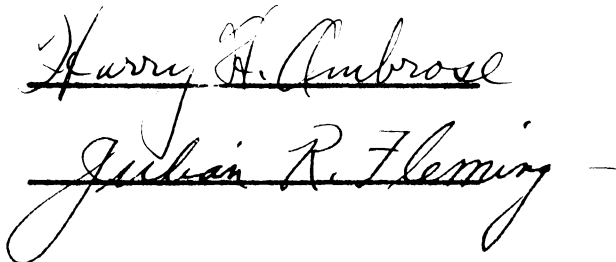 Harry H. Ambrose
Julian R. Fleming